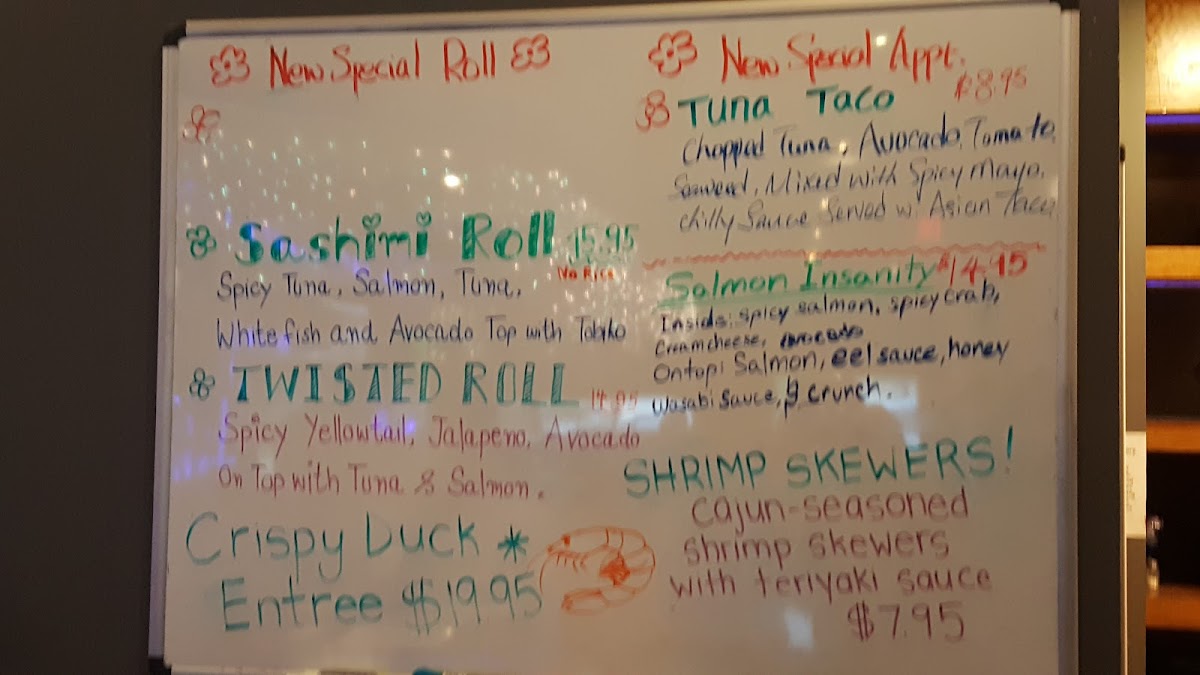 New Special Roll
Sashimi Roll 15.95
No Rice
Spicy Tuna, Salmon, Tuna,
White fish and Avocado Top with Tobiko
TWISTED ROLL 14.95
Spicy Yellowtail, Jalapeno, Avocado
On Top with Tuna & Salmon.
Crispy Duck *
Entree $19.95
New Special Appt.
$8.95
Tuna Taco
Chopped Tuna, Avocado, Tomato,
Seaweed, Mixed with Spicy Mayo,
Chilly Sauce Served w/ Asian Taco
Salmon Insanity $14.95
Inside: spicy salmon, spicy crab,
Creamcheese, avocado
Ontop: Salmon, eel sauce, honey
Wasabi sauce, & crunch.
SHRIMP SKEWERS!
cajun-seasoned
shrimp skewers
with teriyaki sauce
$7.95